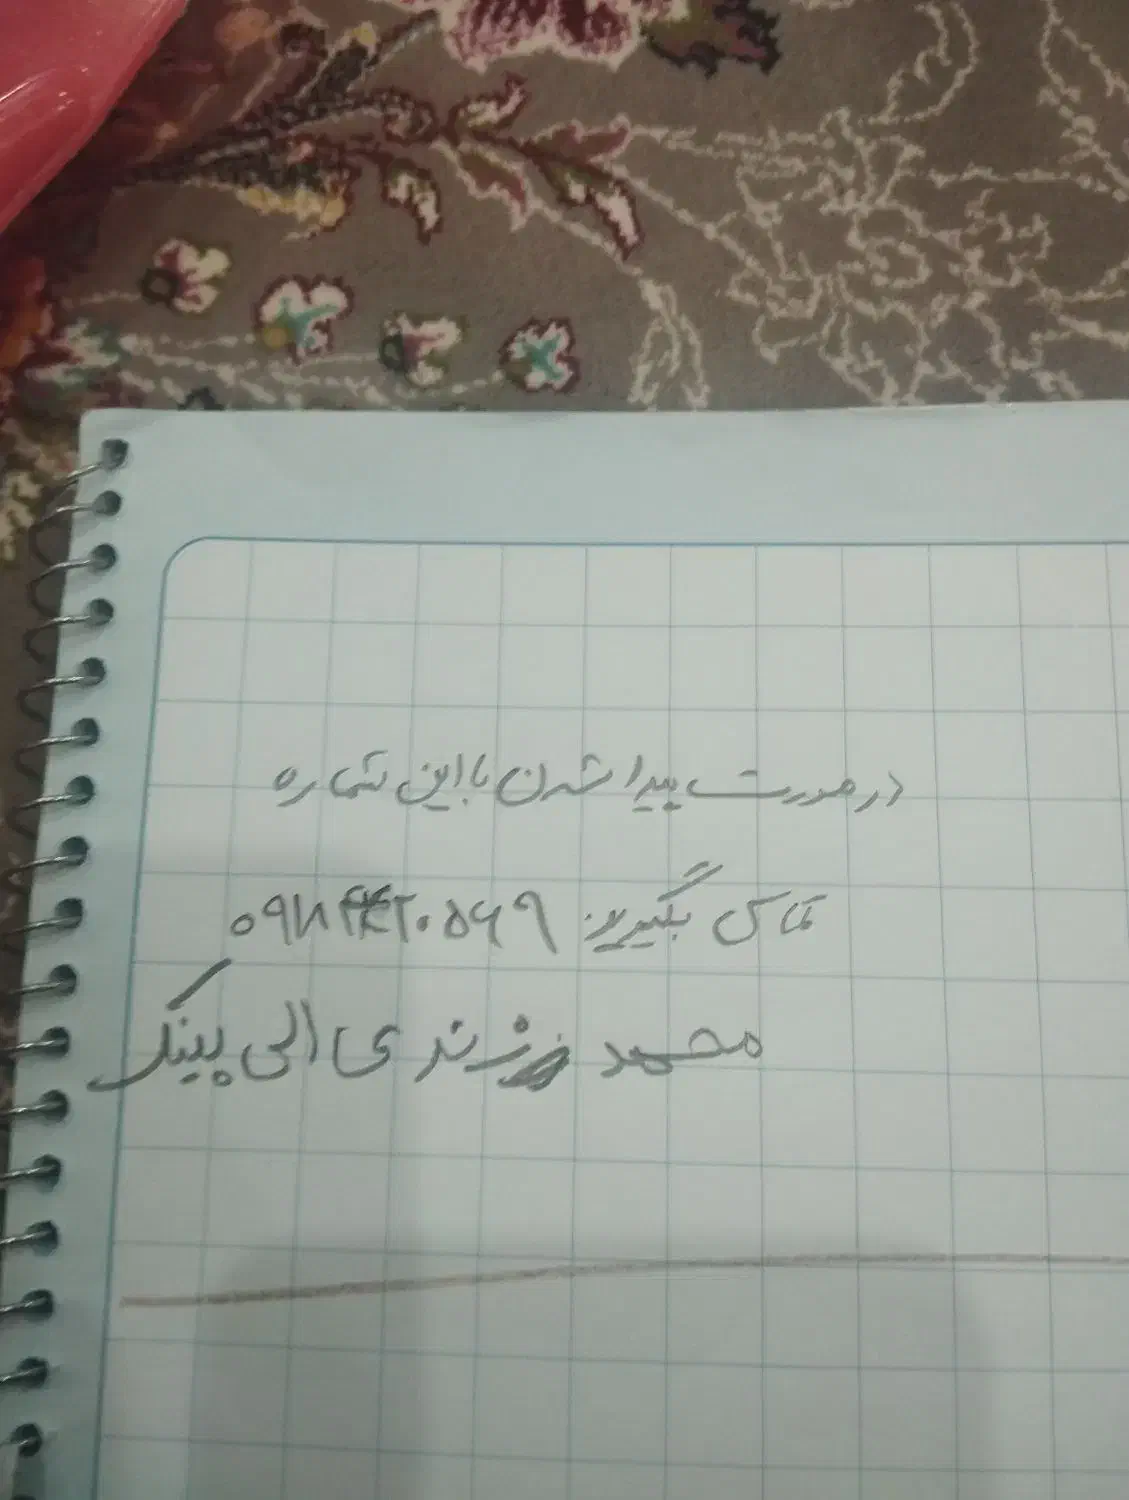 در صورت پیدا شدن با این شماره
تماس بگیرید:
محمد زندی الی پینک